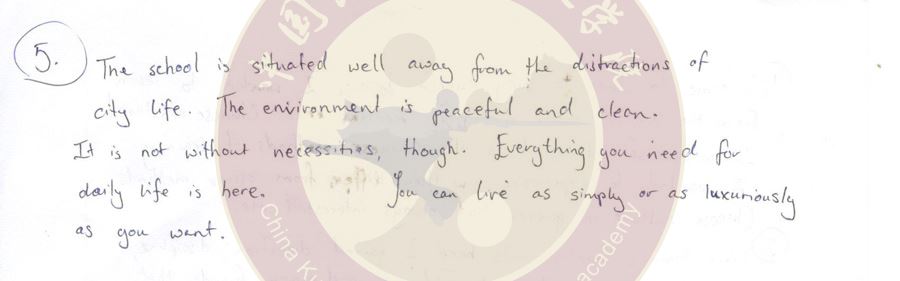 5. The school is situated well away from the distractions of
city life. The environment is peaceful and clean.
It is not without necessities, though. Everything you need for
daily life is here. You can live as simply or as luxuriously
as you want.
China Ku
academy